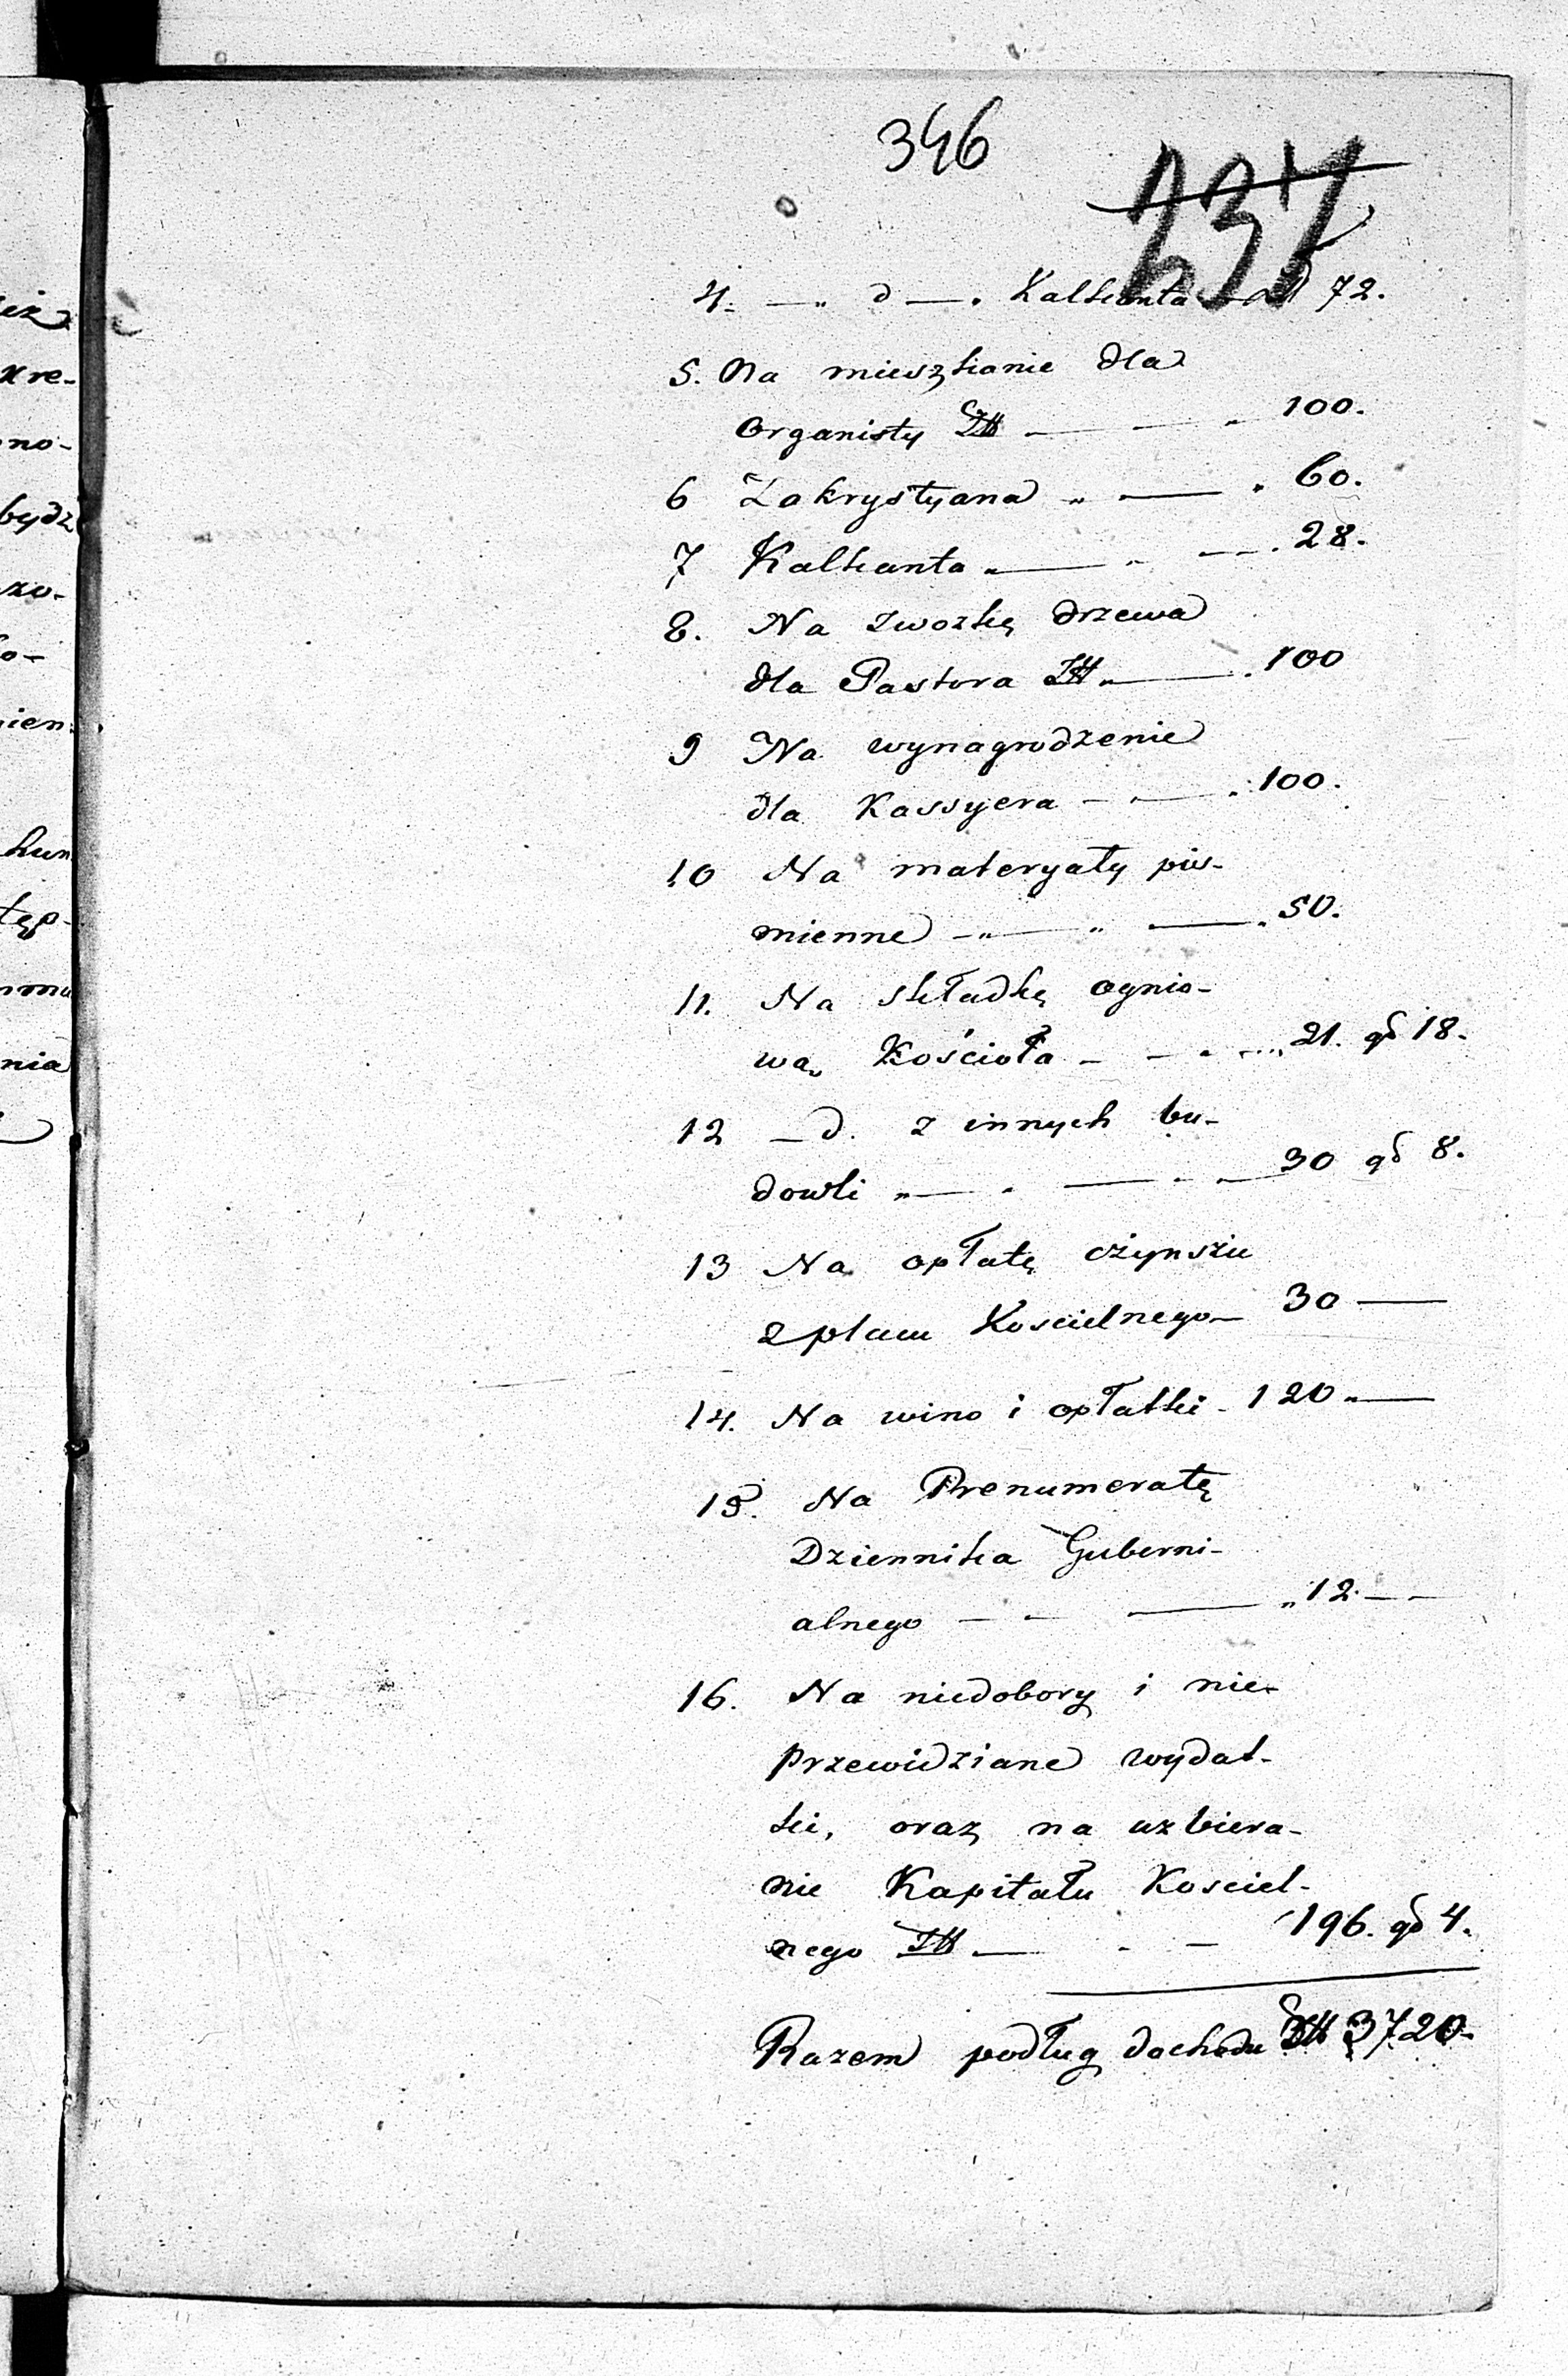 346
237
4. — „ d — „ Kalkanta — zł 72.
5. Na mieszkanie dla
Organisty Zł — — „ 100.
6 Zakrystyana „ — „ 60.
7 Kalkanta „ — „ — . 28.
8. Na zwozkę drzewa
dla Pastora Zł „ — . 100
9 Na wynagrodzenie
dla Kassyera — „ — „ 100.
10 Na materyały piś-
mienne — „ — „ — „ 50.
11. Na składkę ognio-
wą Kościoła — — „ — „ 21. gr 18.
12 — d. z innych bu-
dowli „ — „ — „ — 30 gr 8.
13 Na opłatę czynszu
z placu Koscielnego — 30 —
14. Na wino i opłatki - 120 „ —
15. Na Prenumeratę
Dziennika Guberni-
alnego — — — „ 12. — —
16. Na niedobory i nie-
przewidziane wydat-
ki, oraz na uzbiera-
nie Kapitału Kosciel-
nego Zł — - — 196. gr 4.
Razem podług dochodu Zł 3720.
iż
kre-
no-
bydz
zo-
o-
ien
hun
tęp-
mu
nia